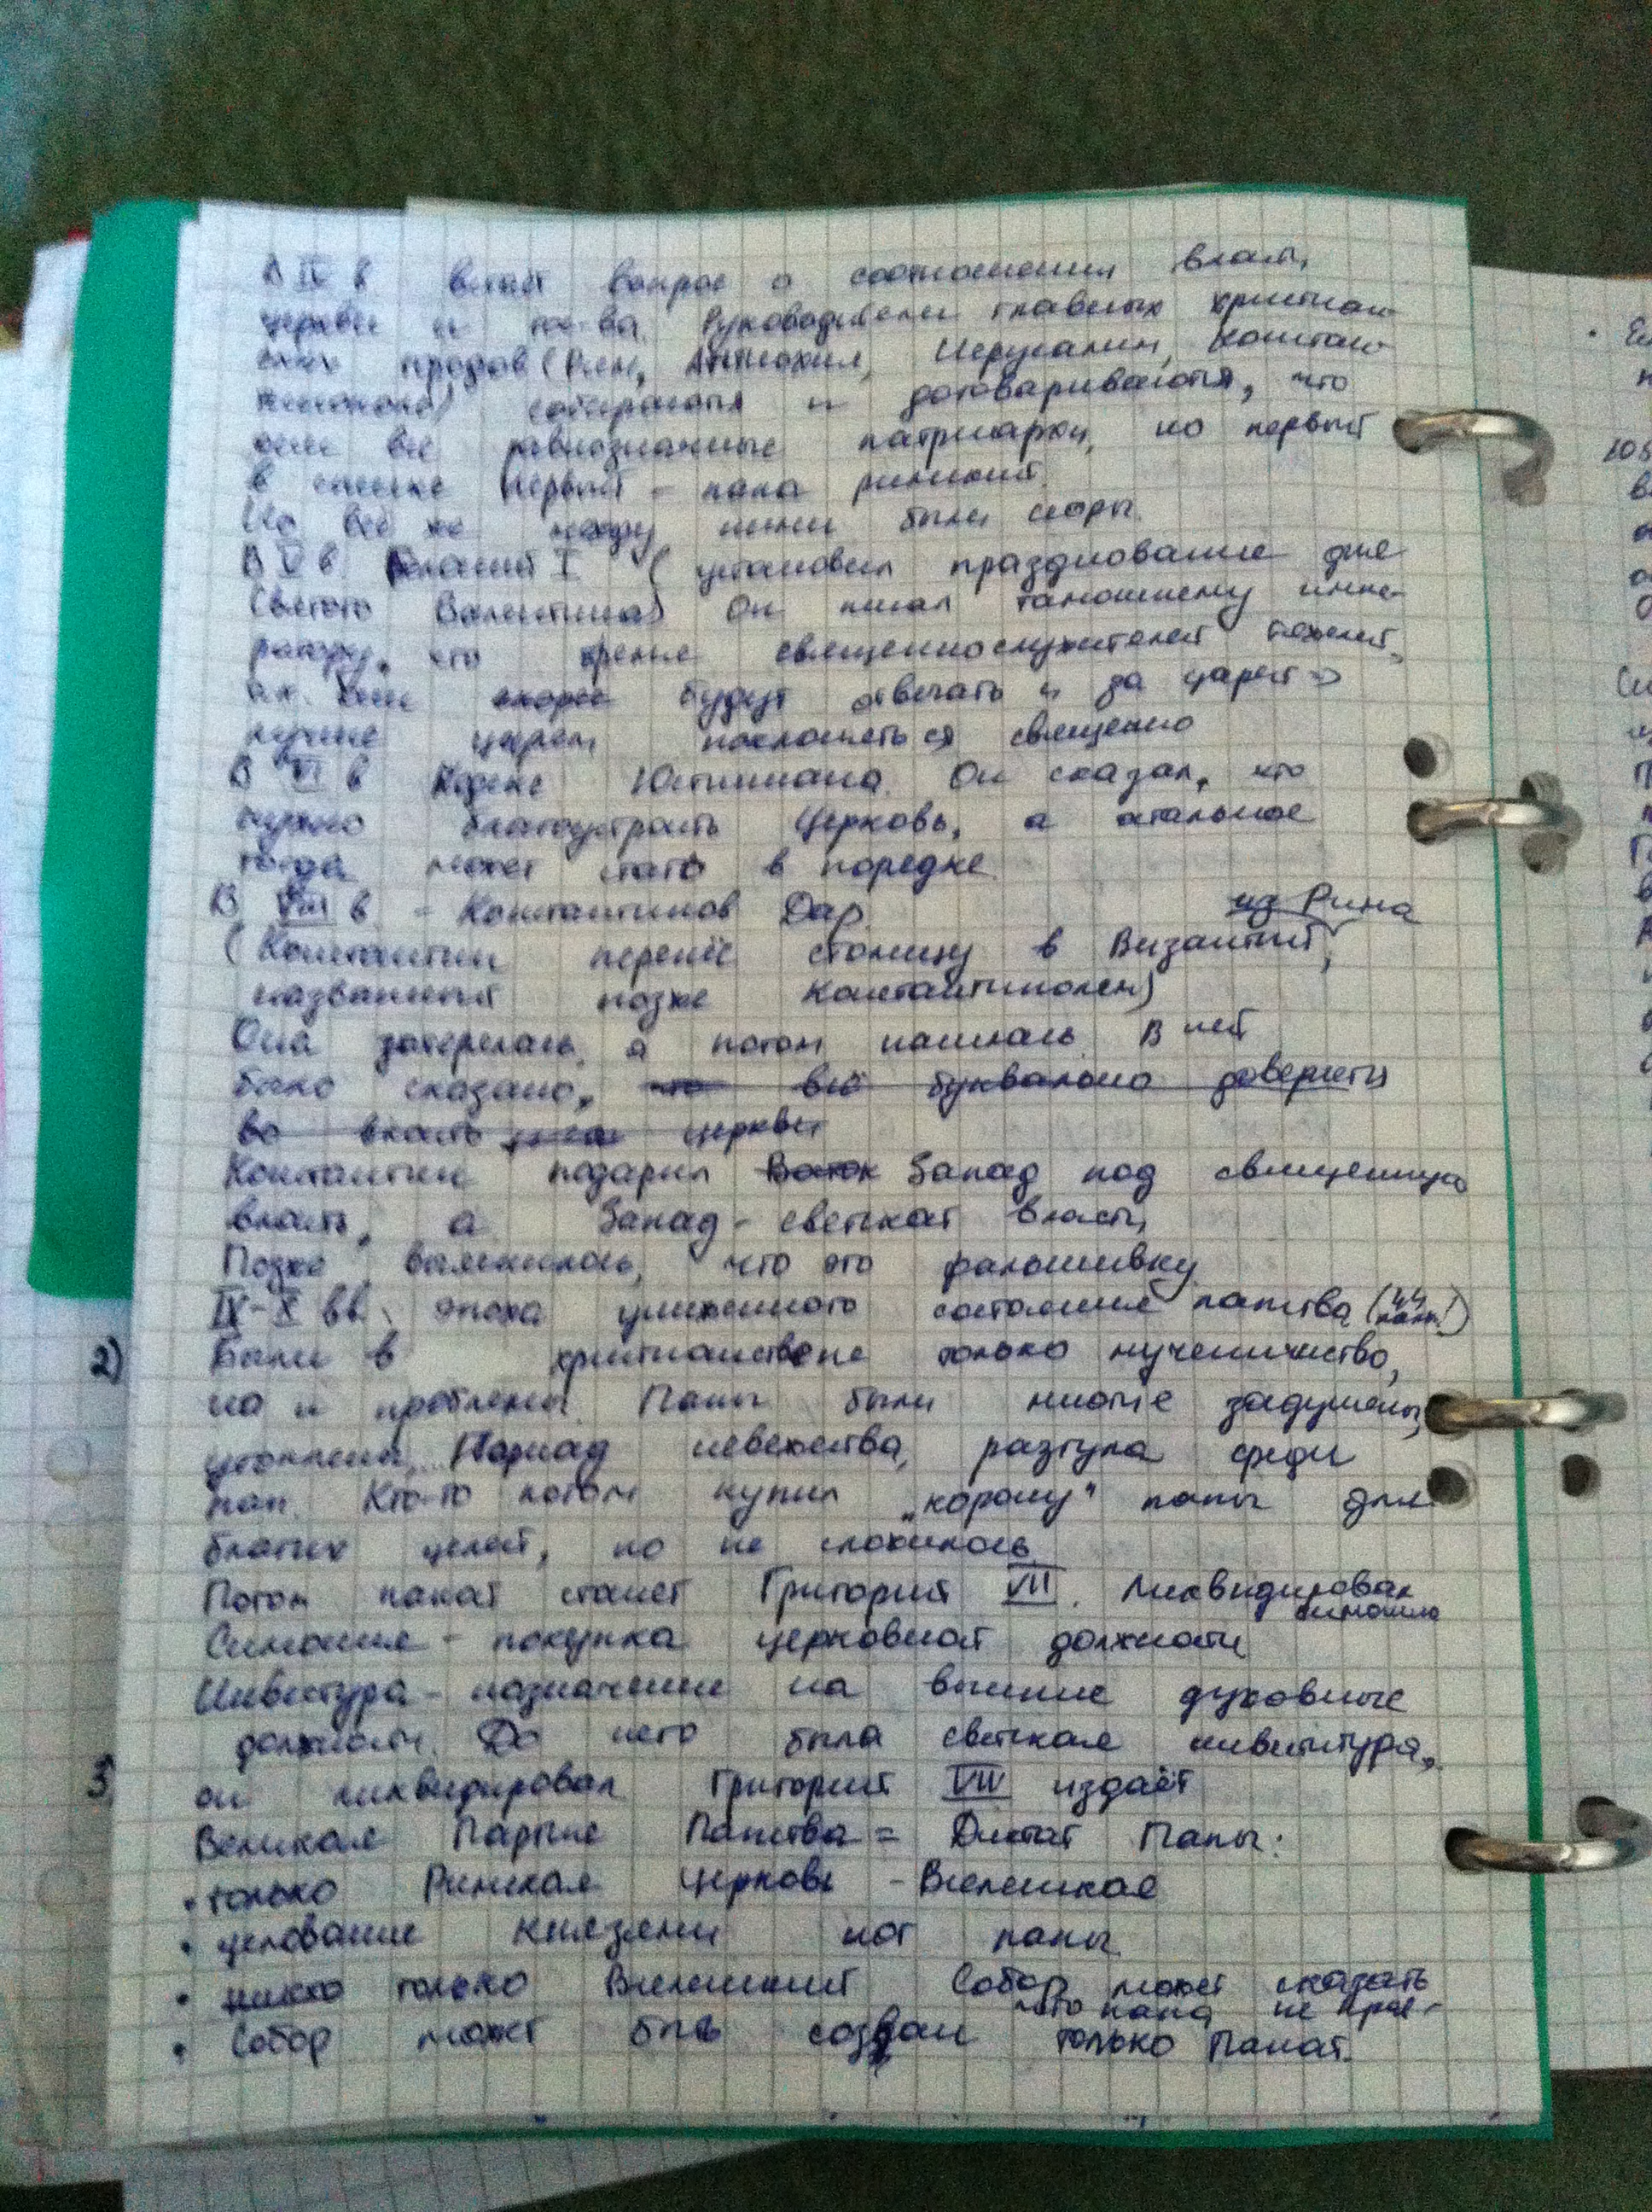 В IV в встаёт вопрос о соотношении власти
церкви и гос-ва. Руководители главных христиан-
ских городов (Рим, Антиохия, Иерусалим, Констан-
тинополь) собираются и договариваются, что
они все равнозначные патриархи, но первый
в списке первый - папа римский.
Но всё же между ними были споры.
В V в Геласий I (установил празднование дня
Святого Валентина) Он писал тамошнему импе-
ратору, что время священнослужителей тяжелей,
т.к. они скорее будут отвечать и за царей =>
лучше царям поклоняться священно
В VI в Кодекс Юстиниана. Он сказал, что
нужно благоустроить Церковь, а остальное
тогда может стать в порядке
В VIII в - Константинов Дар.
из Рима
(Константин перенёс столицу в Византий,
названный позже Константинополем)
Она затерялась, а потом нашлась. В ней
было сказано, что всё буквально доверить
во власть церкви
Константин подарил Восток Запад под священную
власть, а Запад - светской власти
Позже выяснилось, что это фальшивку
IX-X вв. эпоха униженного состояния папства (44 папы!)
Были в христианстве не только мученичество,
но и проблемы. Папы были многие задушены,
утоплены... Период невежества, разгула среди
пап. Кто-то потом купил „корону" папы для
благих целей, но не сложилось
Потом папой станет Григорий VII. Ликвидировал
симонию
Симония - покупка церковной должности
Инвеститура - назначение на высшие духовные
должности. До него была светская инвеститура,
он ликвидировал Григорий VII издаёт
Великая Партия Папства = Диктат Папы:
• только Римская церковь - Вселенская
• целование князьями ног папы
• никто только Вселенский Собор может сказать
что папа не прав-
• Собор может быть созван только Папой.
2)
3